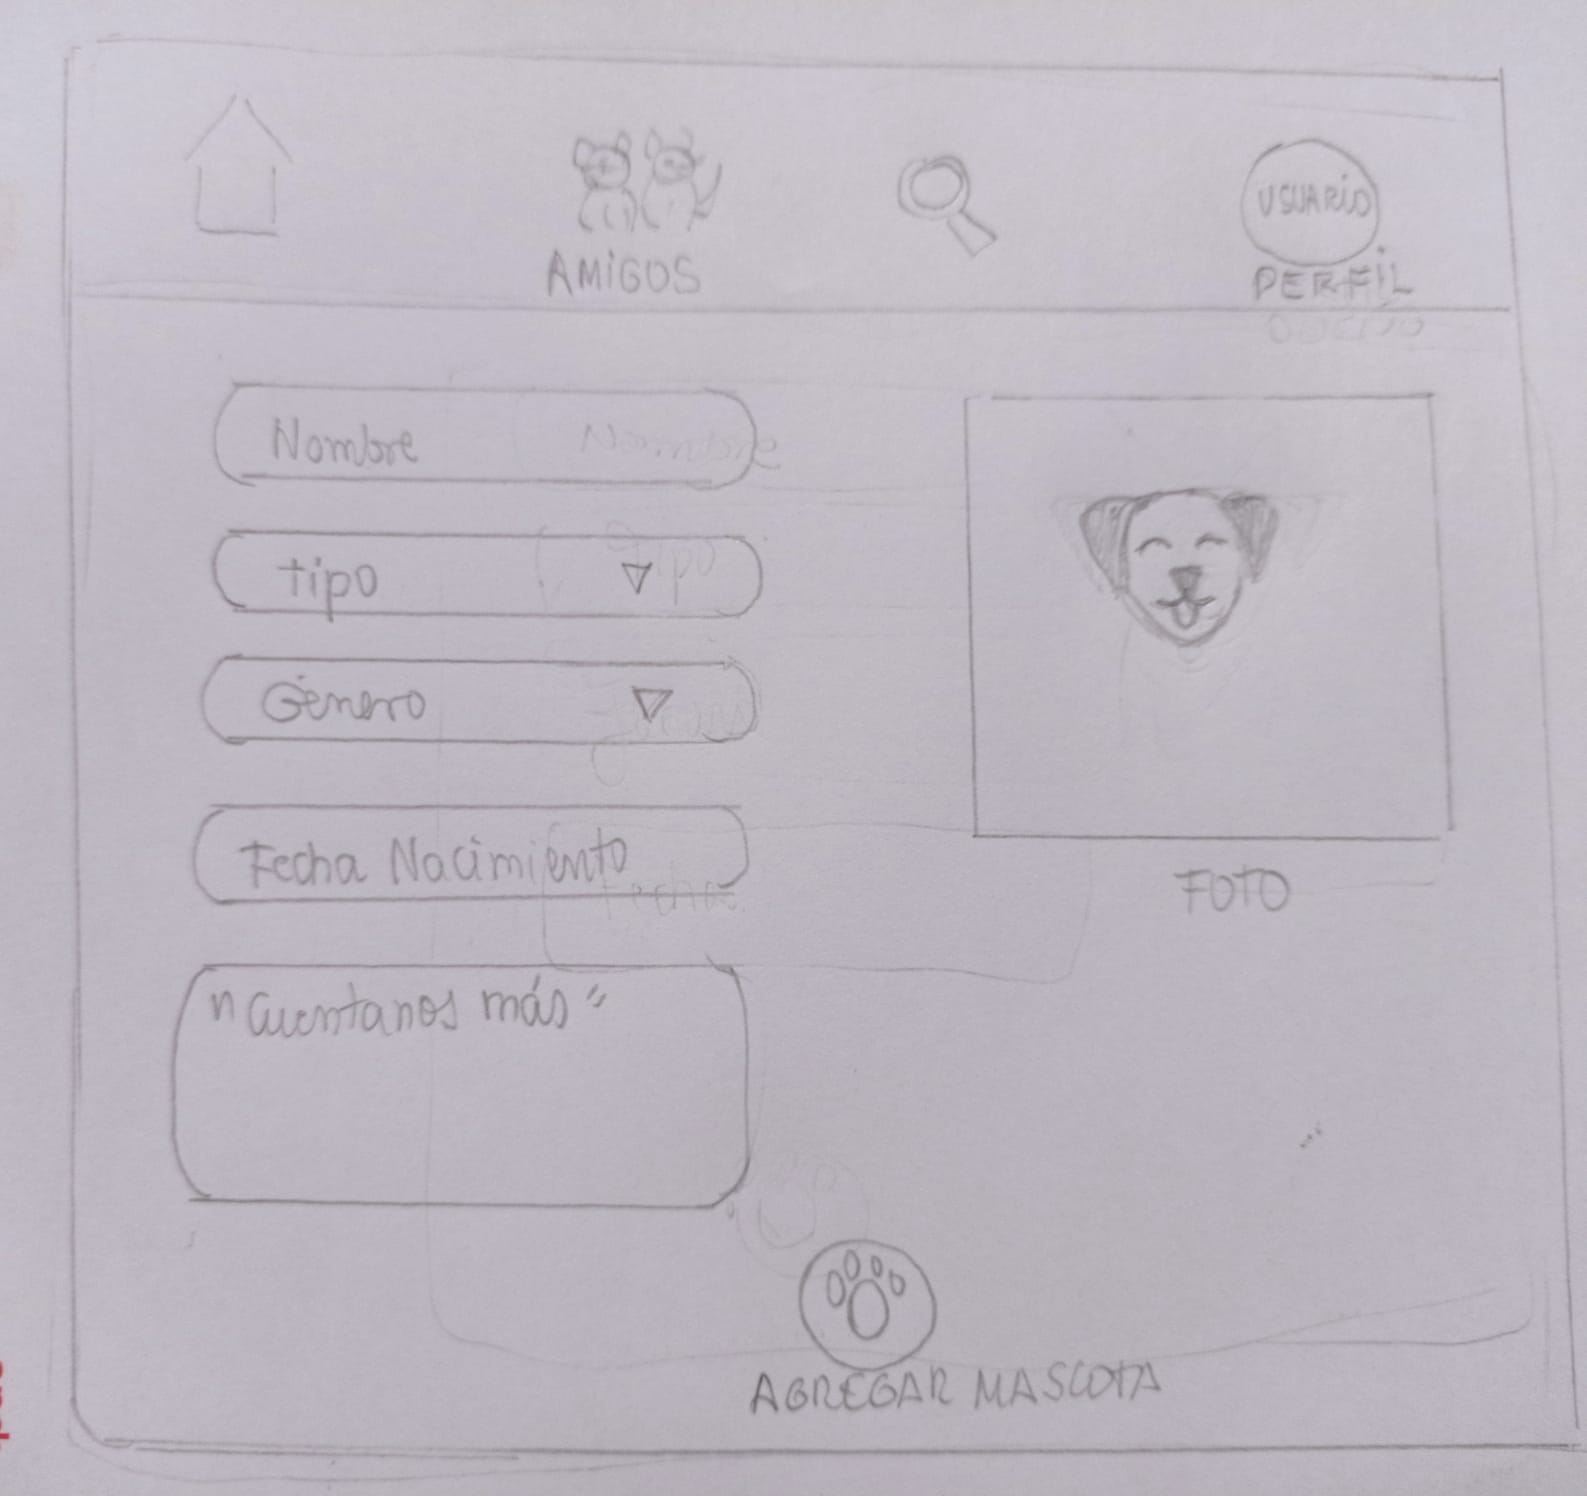 AMiGOS
USUARiO
PERFiL
Nombre Nombre
tipo Tipo
Género
Fecha Nacimiento
Fecha
"Cuentanos más"
FOTO
AGREGAR MASCOTA